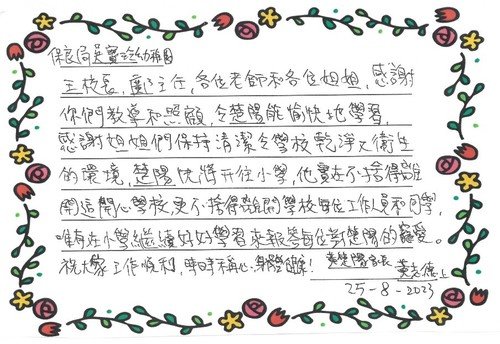 保良局吳寶玲幼稚園
王校長，鄺主任，各位老師和各位姐姐，感謝
你們教導和照顧，令楚陽能愉快地學習，
感謝姐姐們保持清潔令學校乾淨又衛生
的環境，楚陽快將升往小學，他實在不捨得離
開這開心學校，更不捨得離開學校每位工作人員和同學，
唯有在小學繼續好好學習來報答每位對楚陽的寵愛。
祝大家工作順利，時時稱心，身體健康！ 黃楚陽家長 黃志德上
25-8-2023